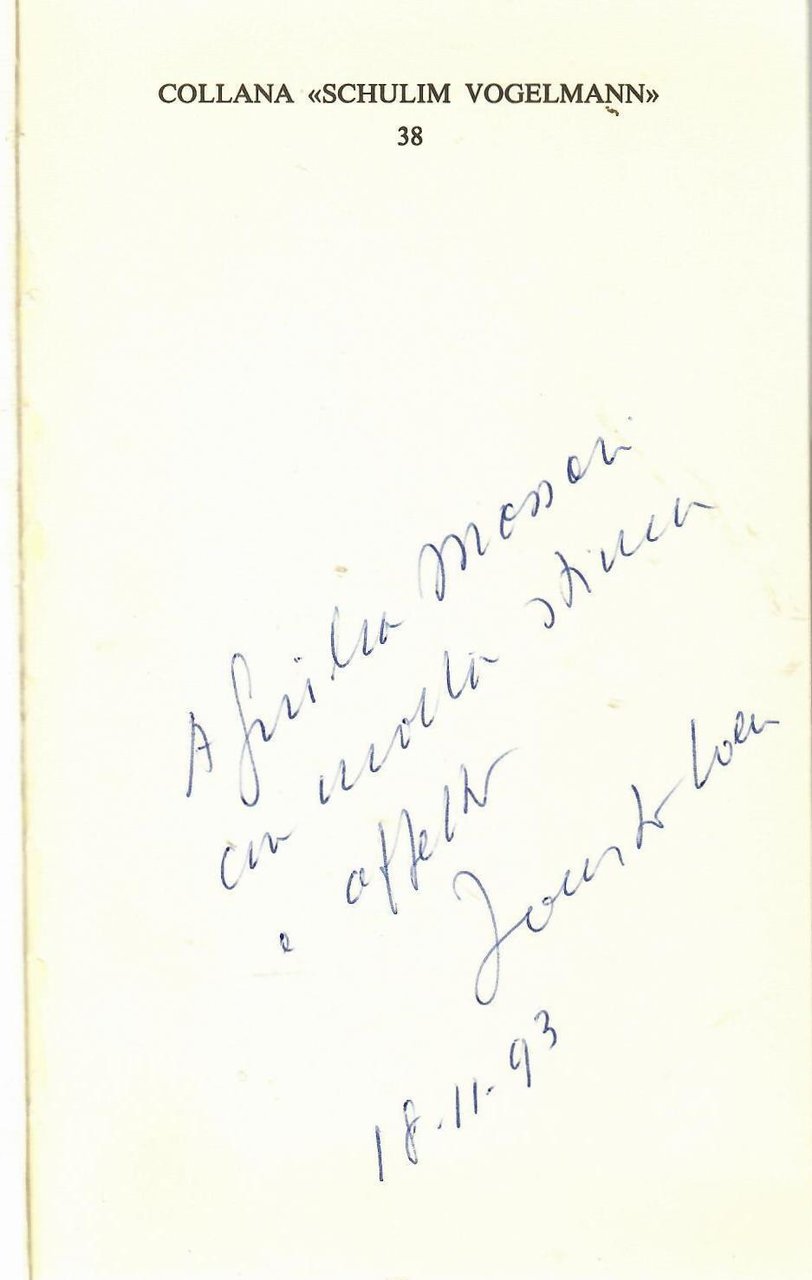 COLLANA «SCHULIM VOGELMANN»
38
A Giulia Massari
con molta stima
e affetto
Fausto Coen
18.11.93